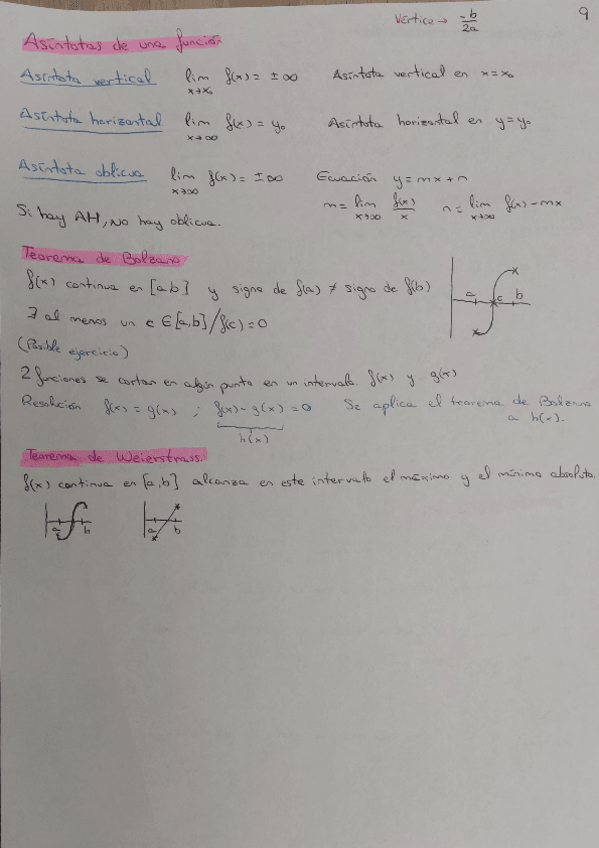 Vértice → -b/2a
9
Asíntotas de una función
Asíntota vertical lim x→x₀ f(x) = ±∞ Asíntota vertical en x=x₀
Asíntota horizontal lim x→∞ f(x) = y₀ Asíntota horizontal en y=y₀
Asíntota oblicua lim x→∞ f(x) = ±∞ Ecuación y=mx+n
m= lim x→∞ f(x)/x n= lim x→∞ f(x)-mx
Si hay AH, No hay oblicua.
Teorema de Bolzano
f(x) continua en [a,b] y signo de f(a) ≠ signo de f(b)
a c b
∃ al menos un c ∈ [a,b] / f(c)=0
(Posible ejercicio)
2 funciones se cortan en algún punto en un intervalo. f(x) y g(x)
Resolución f(x) = g(x) ; f(x)-g(x)=0 Se aplica el teorema de Bolzano
h(x) a h(x).
Teorema de Weierstrass.
f(x) continua en [a,b] alcanza en este intervalo el máximo y el mínimo absoluto.
a b a b